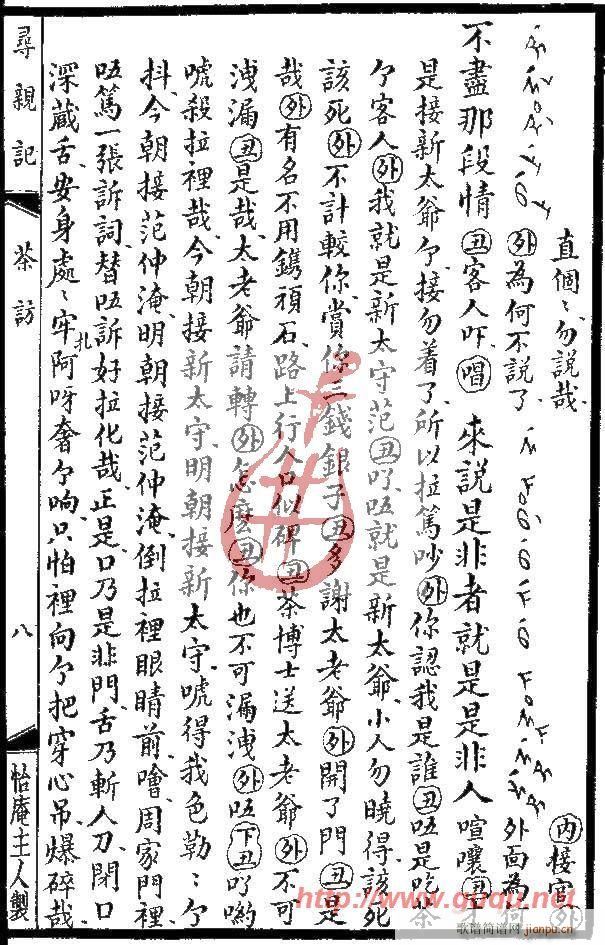 直個〻勿説哉 ㊤接官
不盡那段情 丑 客人吓 唱 來説是非者就是是非人 喧嚷 丑
外 為何不説了 外面為何
是接新太爺个接勿着了所以拉篤吵 外 你認我是誰 丑 唔是吃茶
个客人 外 我就是新太守范 丑 吖唔就是新太爺小人勿曉得該死
該死 外 不計較你賞你三錢銀子 丑 多謝太老爺 外 開了門 丑 是
哉 外 有名不用鐫頑石路上行人口似碑 丑 茶博士送太老爺 外 不可
洩漏 丑 是哉太老爺請轉 外 怎麽 丑 你也不可漏洩 外 唔 下 丑 吖喲
唬殺拉裡哉今朝接新太守明朝接新太守唬得我色勒〻个
抖今朝接范仲淹明朝接范仲淹倒拉裡眼睛前噲周家門裡
唔篤一張訴詞替唔訴好拉化哉正是口乃是非門舌乃斬人刀閉口
深藏舌安身處〻牢阿呀奢个响只怕裡向个把穿心吊爆碎哉
尋親記 茶訪 八 怡庵主人製
http://www.guqu.net
歌谱简谱网 jianpu.cn